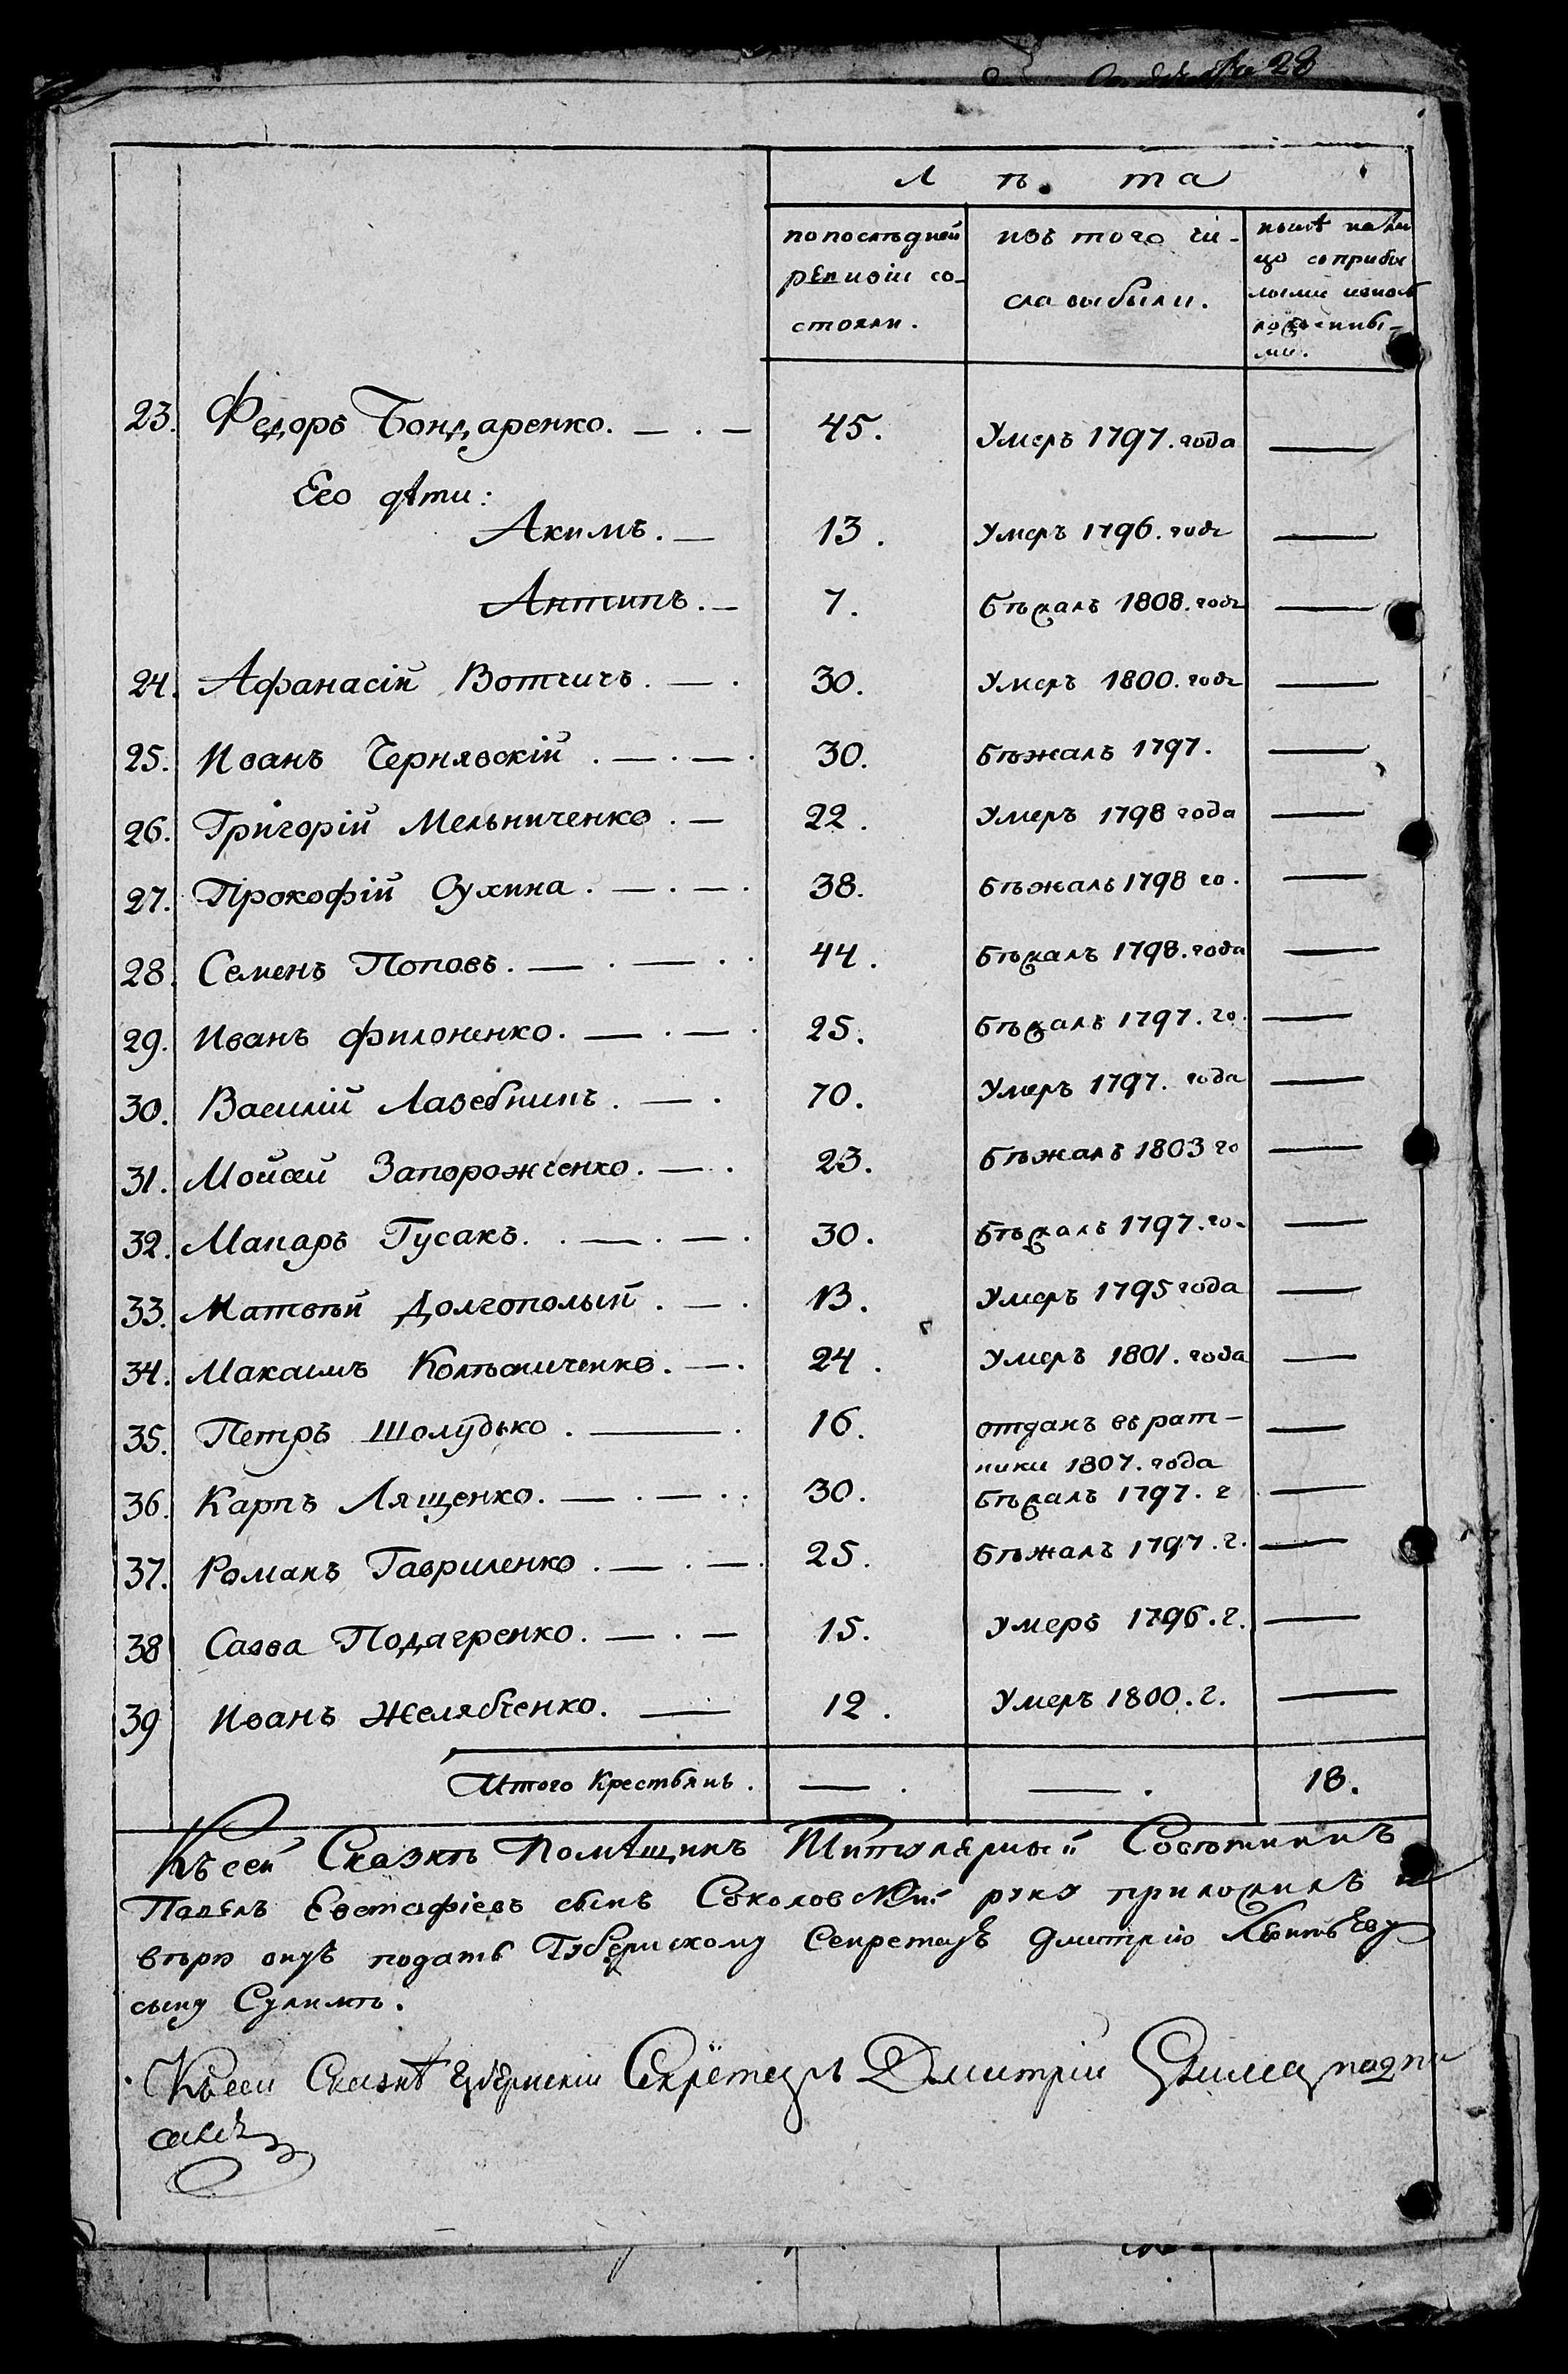 28
Л ѣ та
по послѣдней ревизіи состояли.
изъ того чи-
сла выбыли.
нынѣ на ли
цо съ прибы
лыми
ми.
23. Федоръ Бондаренко. — . — 45. Умеръ 1797. года —
Его дѣти:
Акимъ. — 13. Умеръ 1796. года —
Антипъ. — 7. Бѣжалъ 1808. года —
24. Афанасій Вотчичъ. — . 30. Умеръ 1800. года —
25. Иванъ Чернявскій . — . — . 30. Бѣжалъ 1797. —
26. Григорій Мельниченко . — 22. Умеръ 1798 года —
27. Прокофій Сухина . — . — . 38. Бѣжалъ 1798 го. —
28. Семенъ Поповъ. — . — . . 44. Бѣжалъ 1798. года —
29. Иванъ Филоненко. — . — . 25. Бѣжалъ 1797. го. —
30. Василій Лазебникъ . — . 70. Умеръ 1797. года —
31. Мойсій Запорожченко. — . 23. Бѣжалъ 1803 го —
32. Макаръ Гусакъ. . — . — . 30. Бѣжалъ 1797. го. —
33. Матвѣй Долгополый . — . 13. Умеръ 1795 года —
34. Максимъ Колѣсниченко. — . 24. Умеръ 1801. года —
35. Петръ Шолудько . — . 16. отданъ въ рат-
ники 1807. года —
36. Карпъ Лященко. — . — . . 30. Бѣжалъ 1797. г —
37. Романъ Гавриленко . — . — . 25. Бѣжалъ 1797. г. —
38 Савва Подагренко. — . — 15. Умеръ 1796. г. —
39 Иванъ Желябченко. — 12. Умеръ 1800. г. —
Итого Крестьянъ. — . — . 18.
Къ сей Сказкѣ Помѣщикъ Титулярный Совѣтникъ
Павелъ Евстафіевъ сынъ Соколовскій руку приложилъ и
вѣрю онуѣ подать Губернскому Секретарѣ Дмитрію
сыну Сулимѣ.
Къ сей Сказкѣ Губернскій Секретарь Дмитрій Сулима подпи
салъ